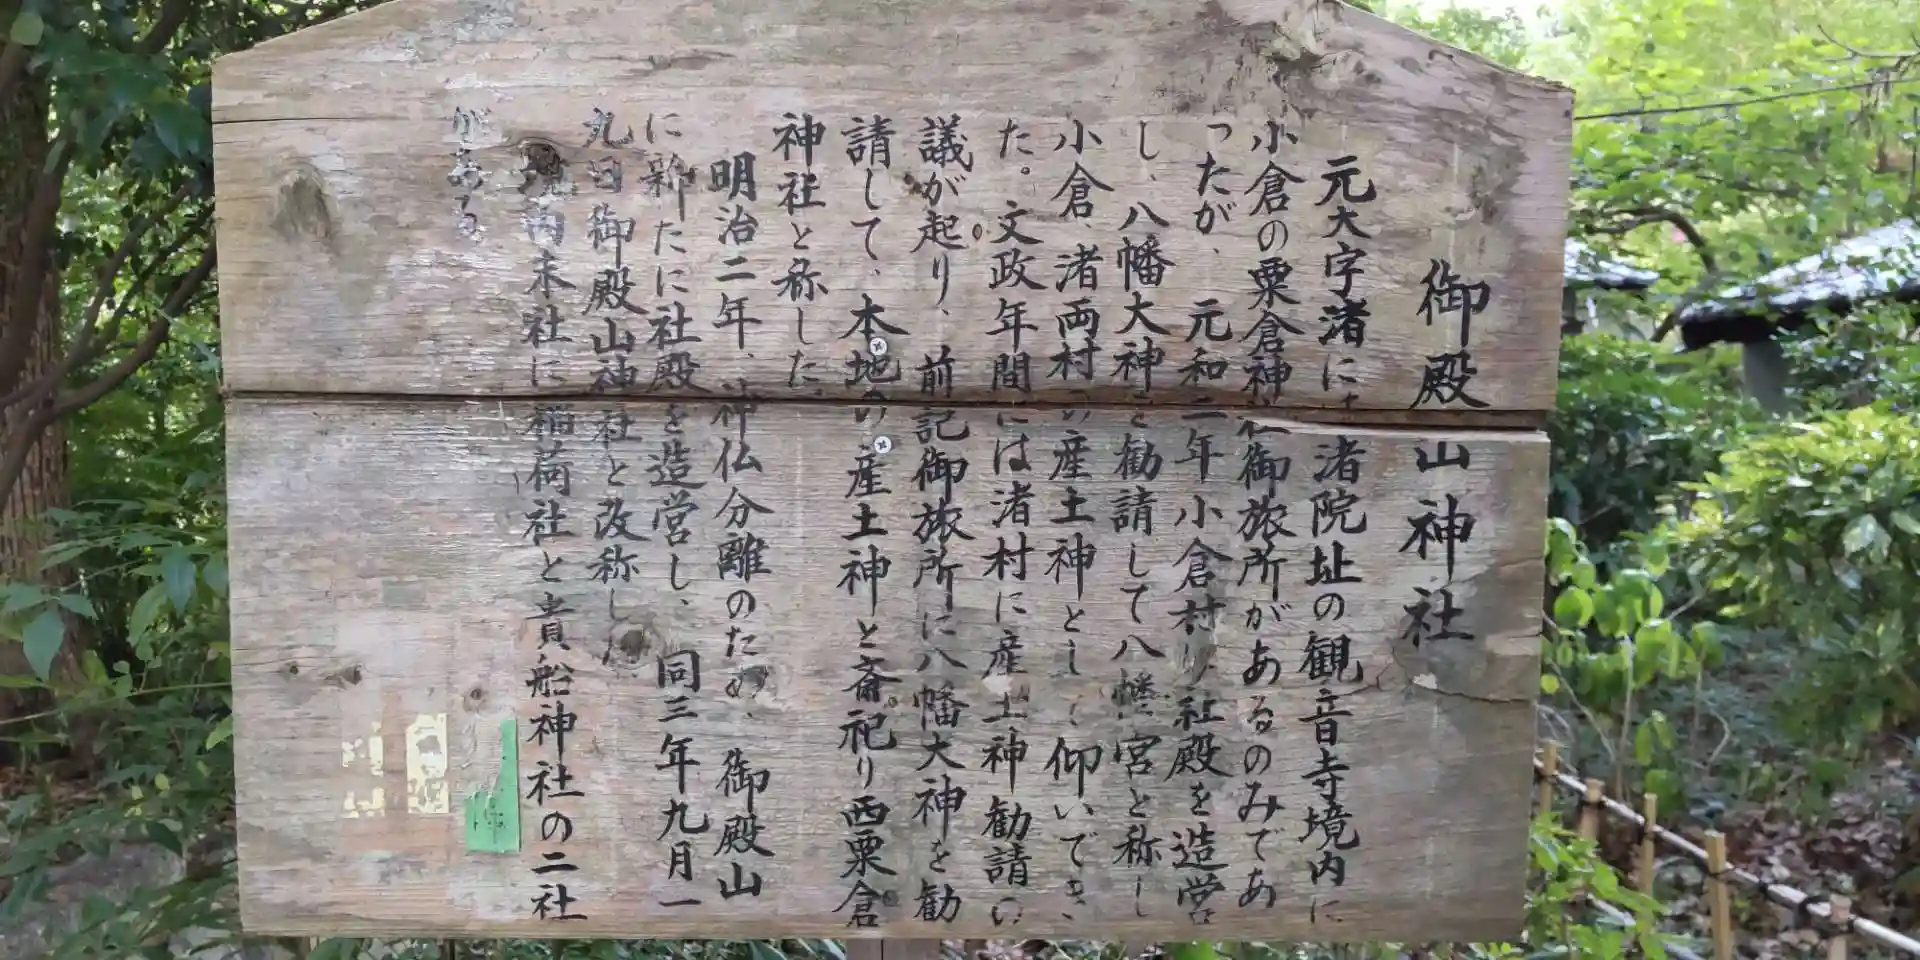 御殿山神社
元大字渚に 渚院址の観音寺境内に
小倉の粟倉神社御旅所があるのみであ
ったが、元和二年小倉村 社殿を造営
し、八幡大神を勧請して八幡宮と称し
小倉、渚両村の産土神として仰いでき
た。文政年間には渚村に産土神勧請の
議が起り、前記御旅所に八幡大神を勧
請して、本地の産土神と斎祀り西粟倉
神社と称した。
明治二年、神仏分離のため、御殿山
に新たに社殿を造営し、同三年九月一
九日御殿山神社と改称した
境内末社に稲荷社と貴船神社の二社
がある